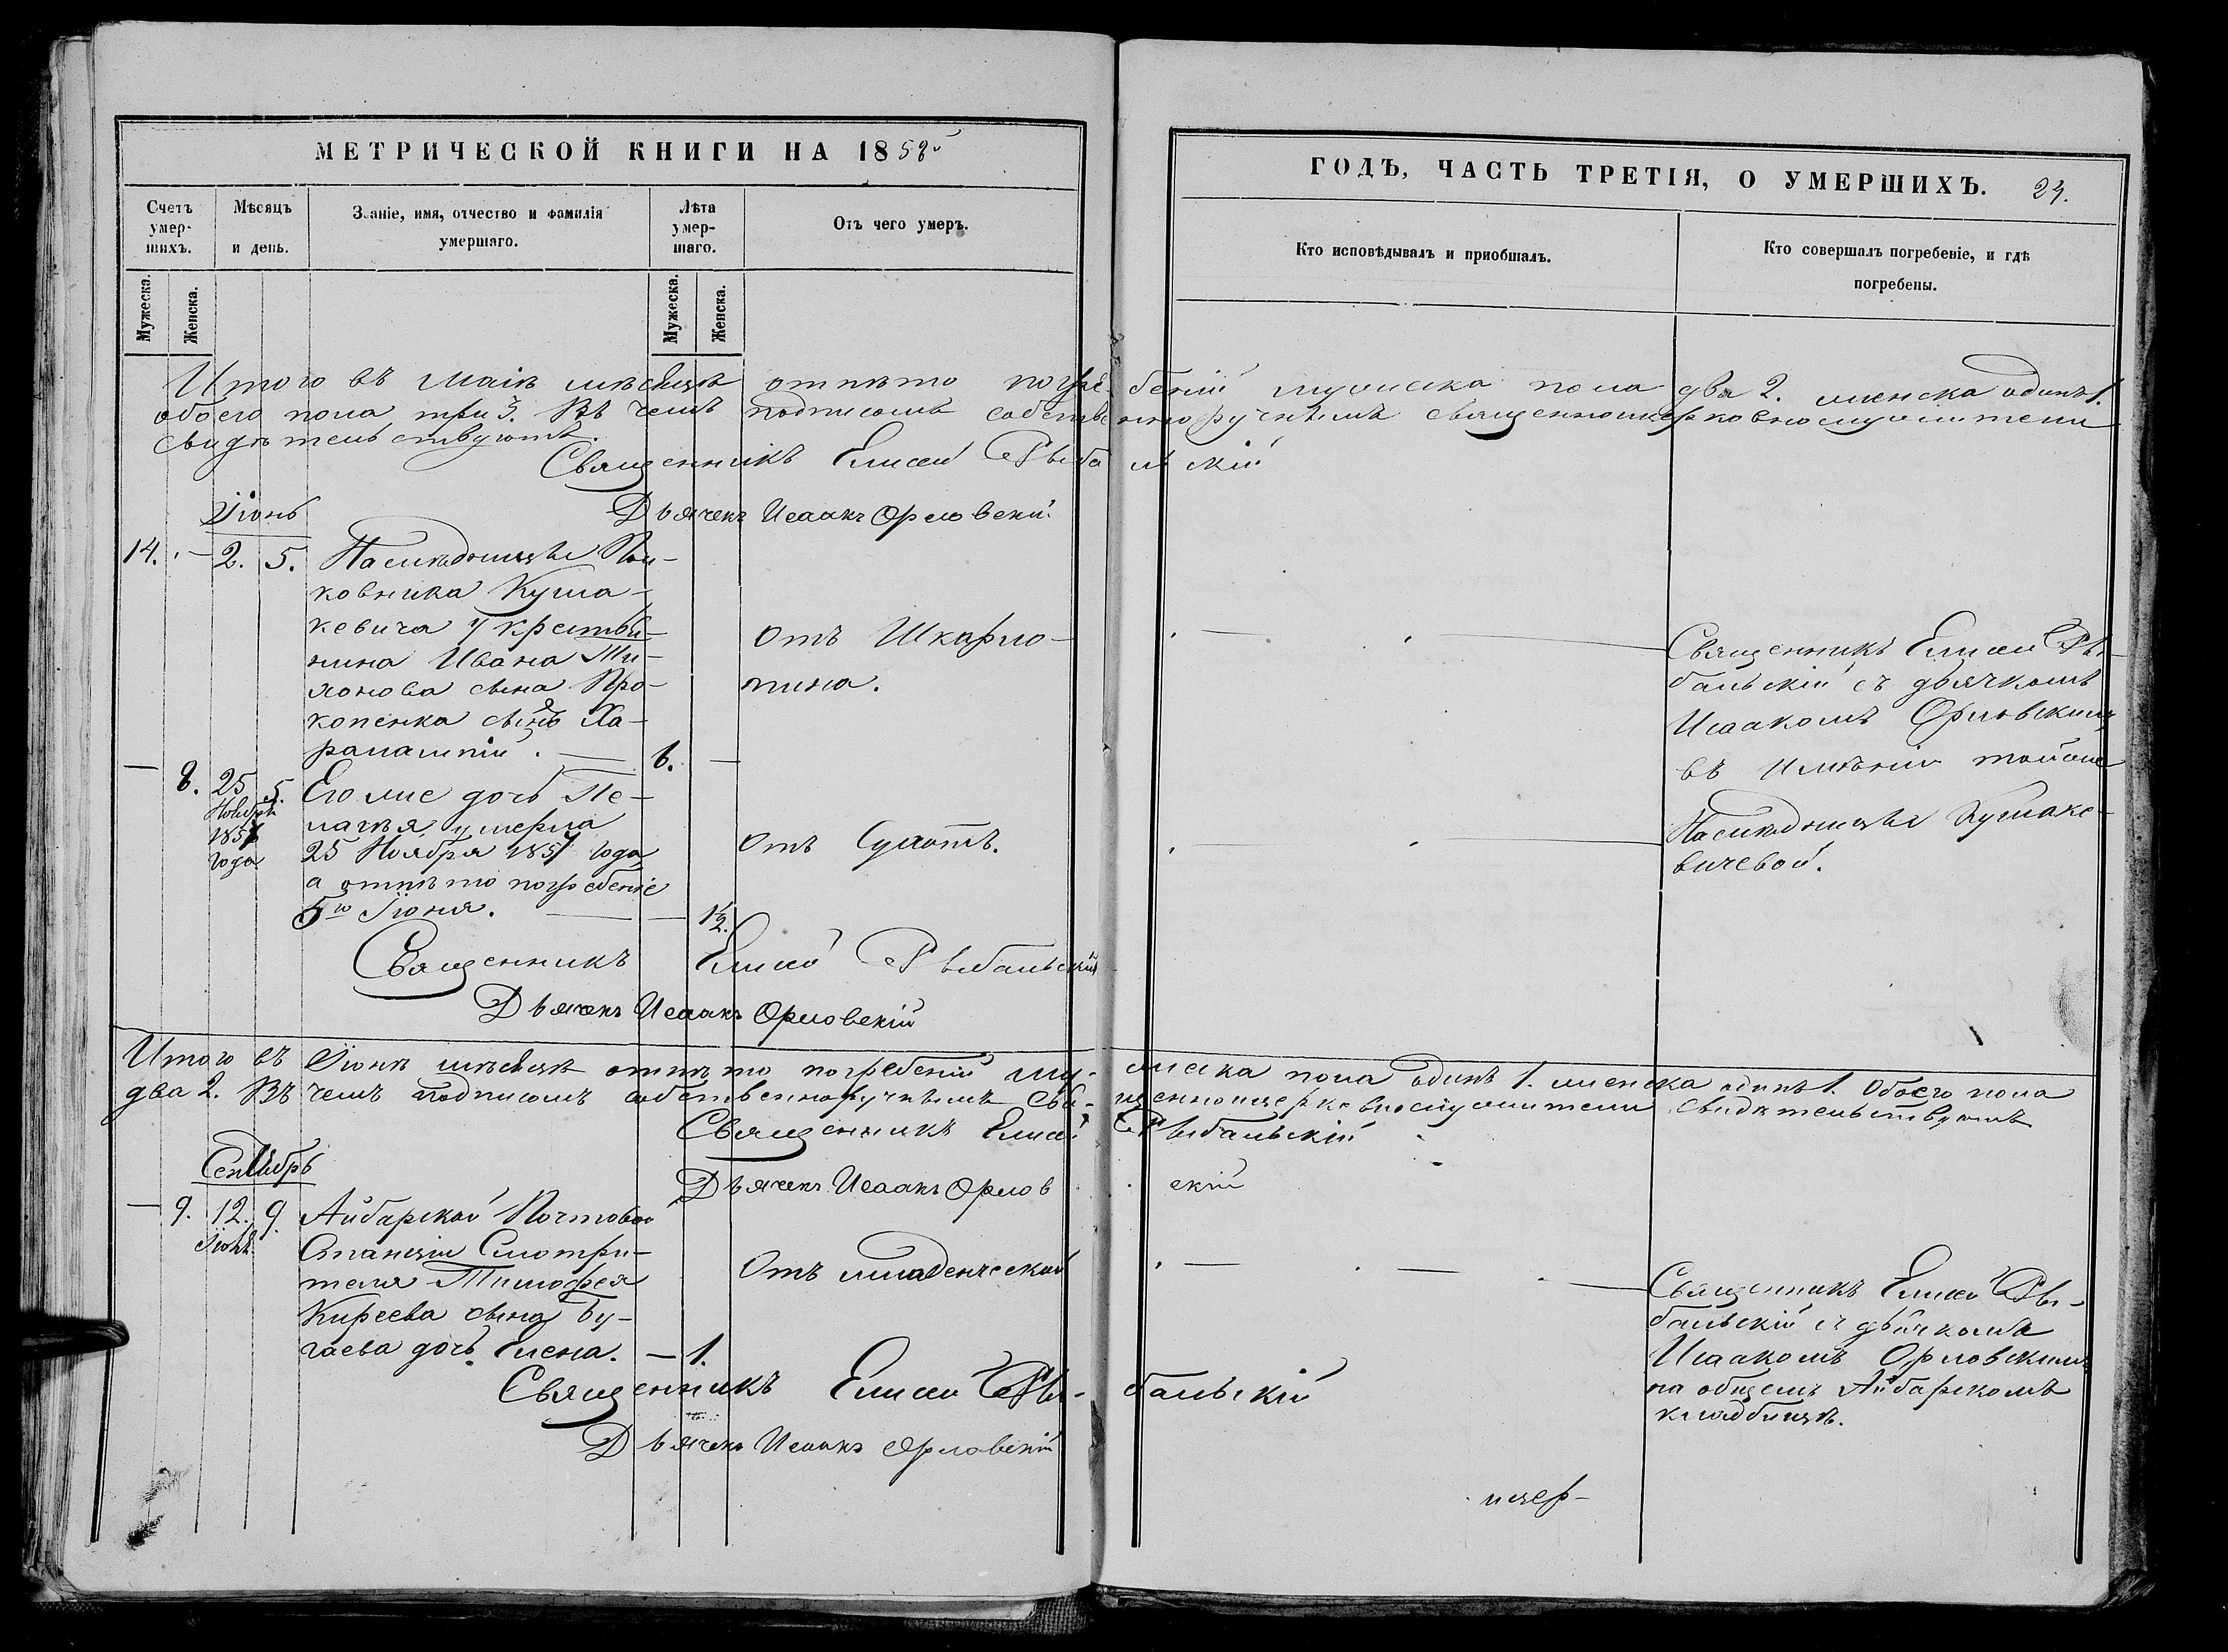 МЕТРИЧЕСКОЙ КНИГИ НА 1858й
ГОДЪ, ЧАСТЬ ТРЕТІЯ, О УМЕРШИХЪ.
Счетъ умер-шихъ.
Мѣсяцъ и день.
Званіе, имя, отчество и фамилія умершаго.
Лѣта умер-шаго.
Отъ чего умеръ.
Кто исповѣдывалъ и пріобщалъ.
Кто совершалъ погребеніе, и гдѣ погребены.
Мужеска.
Женска.
Мужеска.
Женска.
Итого въ Маіѣ мѣсяцѣ отпѣто погребеній мужеска пола два 2. женска одинъ 1.
обоего пола три 3. Въ чемъ подписомъ собственноручнымъ священноцерковнослужители
свидѣтельствуютъ.
Священникъ Елисей Рыбальскій
Дьячекъ Исаакъ Орловскій
Іюнь
14. - 2. 5. Наслѣдницы Пол-
ковника Кушма-
кевича Крестья-
нина Ивана
сына Про-
копенка сынъ Ха-
рлампій. — 6. —
Отъ Шкарла-
тина.
Священникъ Елисей Ры-
бальскій съ дьячкомъ
Исаакомъ Орловскимъ
въ имѣніи тойже
Наслѣдницы
вичевой.
— 8. 25 5. Его же дочь Пе-
Ноября 1857 года
лагѣя, умерла
25 Ноября 1857 года,
а отпѣто погребеніе
5го Іюня. — 1½.
Отъ Сухотъ.
Священникъ Елисей Рыбальскій
Дьячекъ Исаакъ Орловскій
Итого въ Іюнѣ мѣсяцѣ отпѣто погребеній мужеска пола одинъ 1. женска одинъ 1. Обоего пола
два 2. Въ чемъ подписомъ собственноручнымъ священноцерковнослужители свидѣтельствуютъ
Священникъ Елисей Рыбальскій
Дьячекъ Исаакъ Орловскій
Сентябрь
— 9. 12. 9. Айбарской Почтовой
Станціи Смотри-
теля Тимофея
Киреева сына Бу-
гаева дочь Елена. — 1.
Отъ младенческой
Священникъ Елисей Ры-
бальскій съ дьячкомъ
Исаакомъ Орловскимъ
на общемъ Айбарскомъ
кладбищѣ.
Священникъ Елисей Рыбальскій
Дьячекъ Исаакъ Орловскій